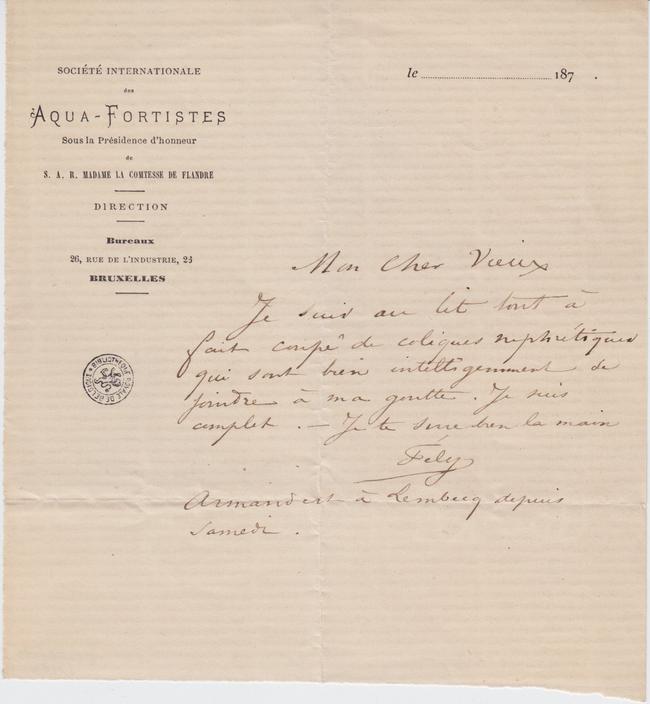 SOCIÉTÉ INTERNATIONALE
des
AQUA-FORTISTES
Sous la Présidence d'honneur
de
S. A. R. MADAME LA COMTESSE DE FLANDRE
DIRECTION
Bureaux
26, RUE DE L'INDUSTRIE, 23
BRUXELLES
le 187 .
Mon Cher Vieux
Je suis au lit tout à
fait coupé de coliques néphrétiques
qui sont bien intelligemment de
joindre à ma goutte. Je suis
complet. — Je te serre bien la main
Fély
Armand est à Lembecq depuis
samedi.
BIBLIOTHEQUE ROYALE DE BELGIQUE